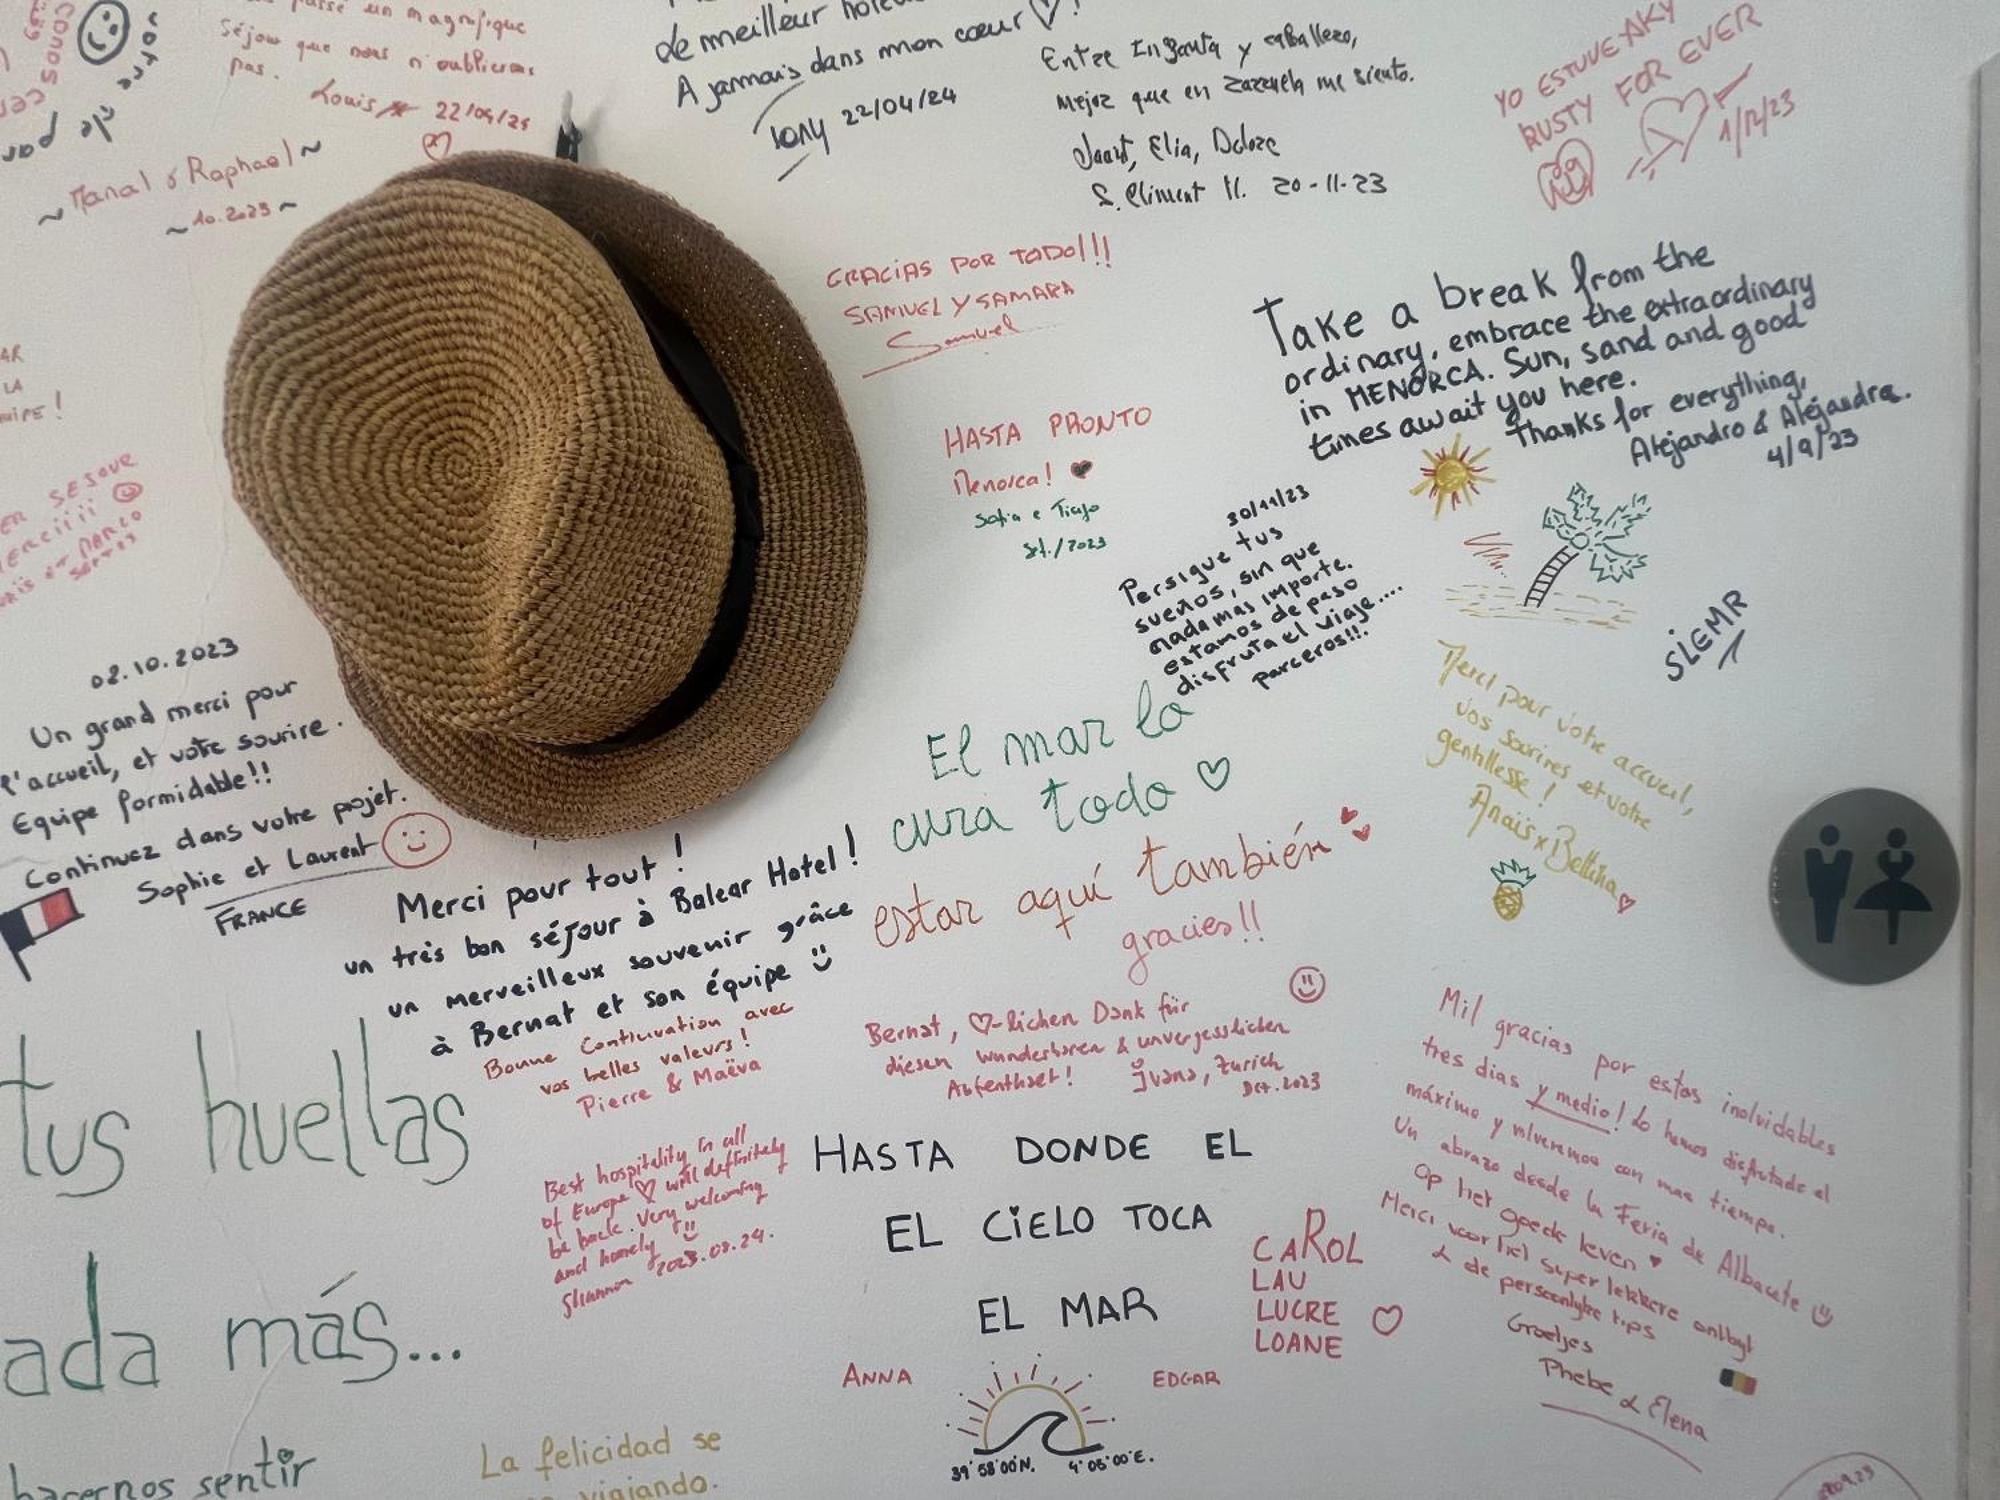 un magnifique
séjour que nous n'oublierons
pas.
Louis
de meilleur
A jamais dans mon cœur ♡!
Tony 22/04/24
Entre Infanta y caballero,
mejor que en Zarzuela me siento.
Elia,
20-11-23
YO ESTUVE AKY
RUSTY FOR EVER
1/12/23
Manal & Raphael
~10.2023~
GRACIAS POR TODO!!!
SAMUEL Y SAMARA
Samuel
Take a break from the
ordinary, embrace the extraordinary
in MENORCA. Sun, sand and good
times await you here.
Thanks for everything,
Alejandro & Alejandra.
4/9/23
HASTA PRONTO
Menorca! ♥
Sofia e Tiago
Set./2023
30/11/23
Persigue tus
sueños, sin que
nada mas importe.
estamos de paso
disfruta el viaje....
parceros!!!.
SiEMR
02.10.2023
Un grand merci pour
l'accueil, et votre sourire.
Equipe formidable!!
Continuez dans votre projet.
Sophie et Laurent
FRANCE
El mar lo
cura todo ♡
estar aquí también
gracies!!
Merci pour votre accueil,
vos sourires et votre
gentillesse!
Anaïs x Bettina
Merci pour tout !
un très bon séjour à Balear Hotel !
un merveilleux souvenir grâce
à Bernat et son équipe
Bonne Continuation avec
vos belles valeurs!
Pierre & Maëva
Bernat, ♡-lichen Dank für
diesen wunderbaren & unvergesslichen
Aufenthalt!
Ivana, Zürich
2023
tus huellas
ada más...
hacernos sentir
Best hospitality in all
of Europe ♡ will definitely
be back. Very welcoming
and homely
2023.09.29.
HASTA DONDE EL
EL CiELO TOCA
EL MAR
CAROL
LAU
LUCRE ♡
LOANE
ANNA
EDGAR
39°58'00"N. 4°05'00"E.
Mil gracias por estos inolvidables
tres dias y medio! Lo hemos disfrutado al
máximo y volveremos con mas tiempo.
Un abrazo desde la Feria de Albacete
Op het goede leven ♥
Merci voor het super lekkere ontbijt
& de persoonlijke tips
Groetjes
Phebe & Elena
La felicidad se
viajando.